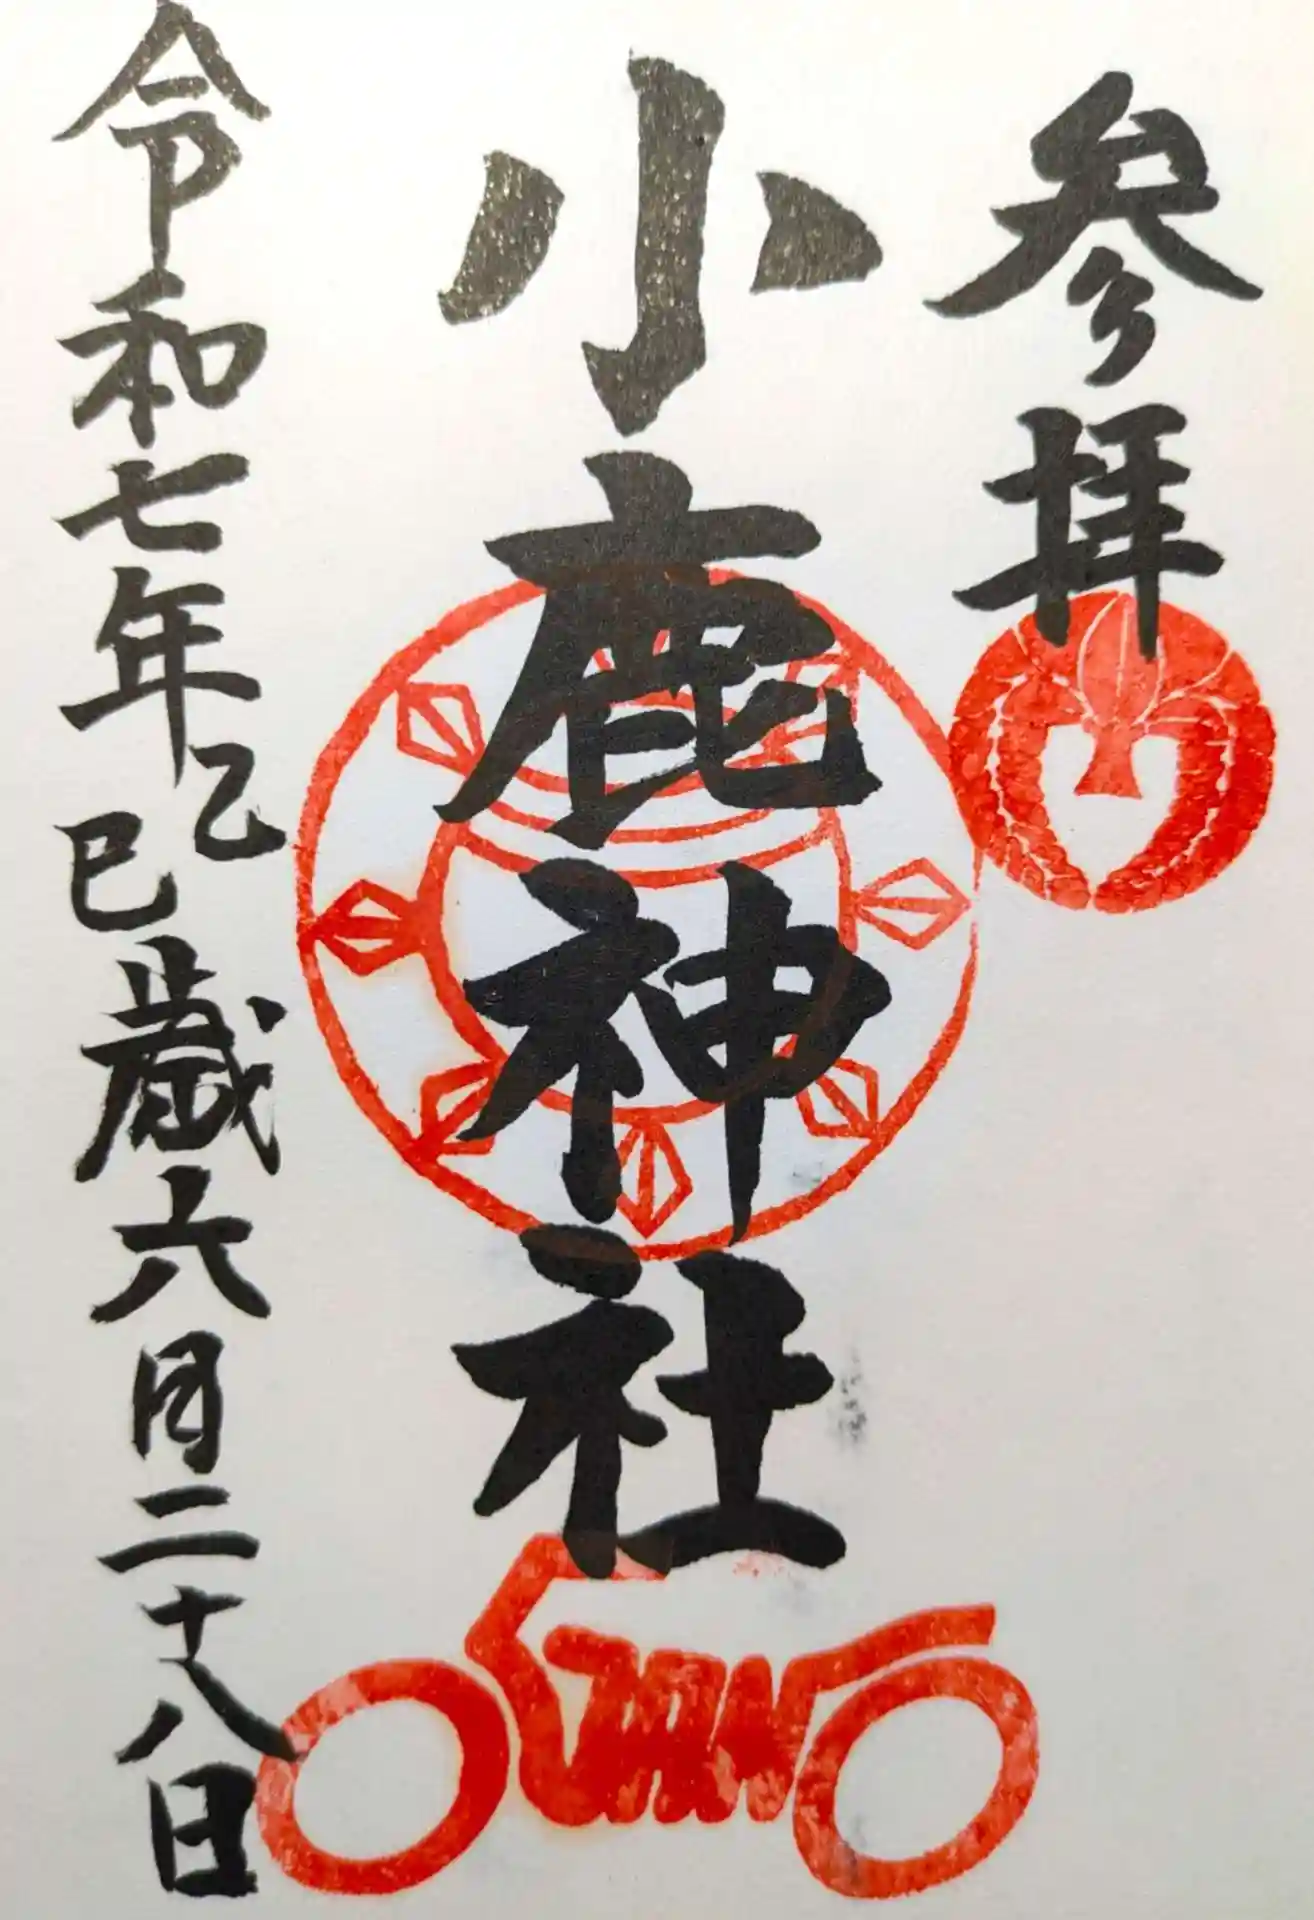 参拝
小鹿神社
令和七年乙巳歳六月二十八日